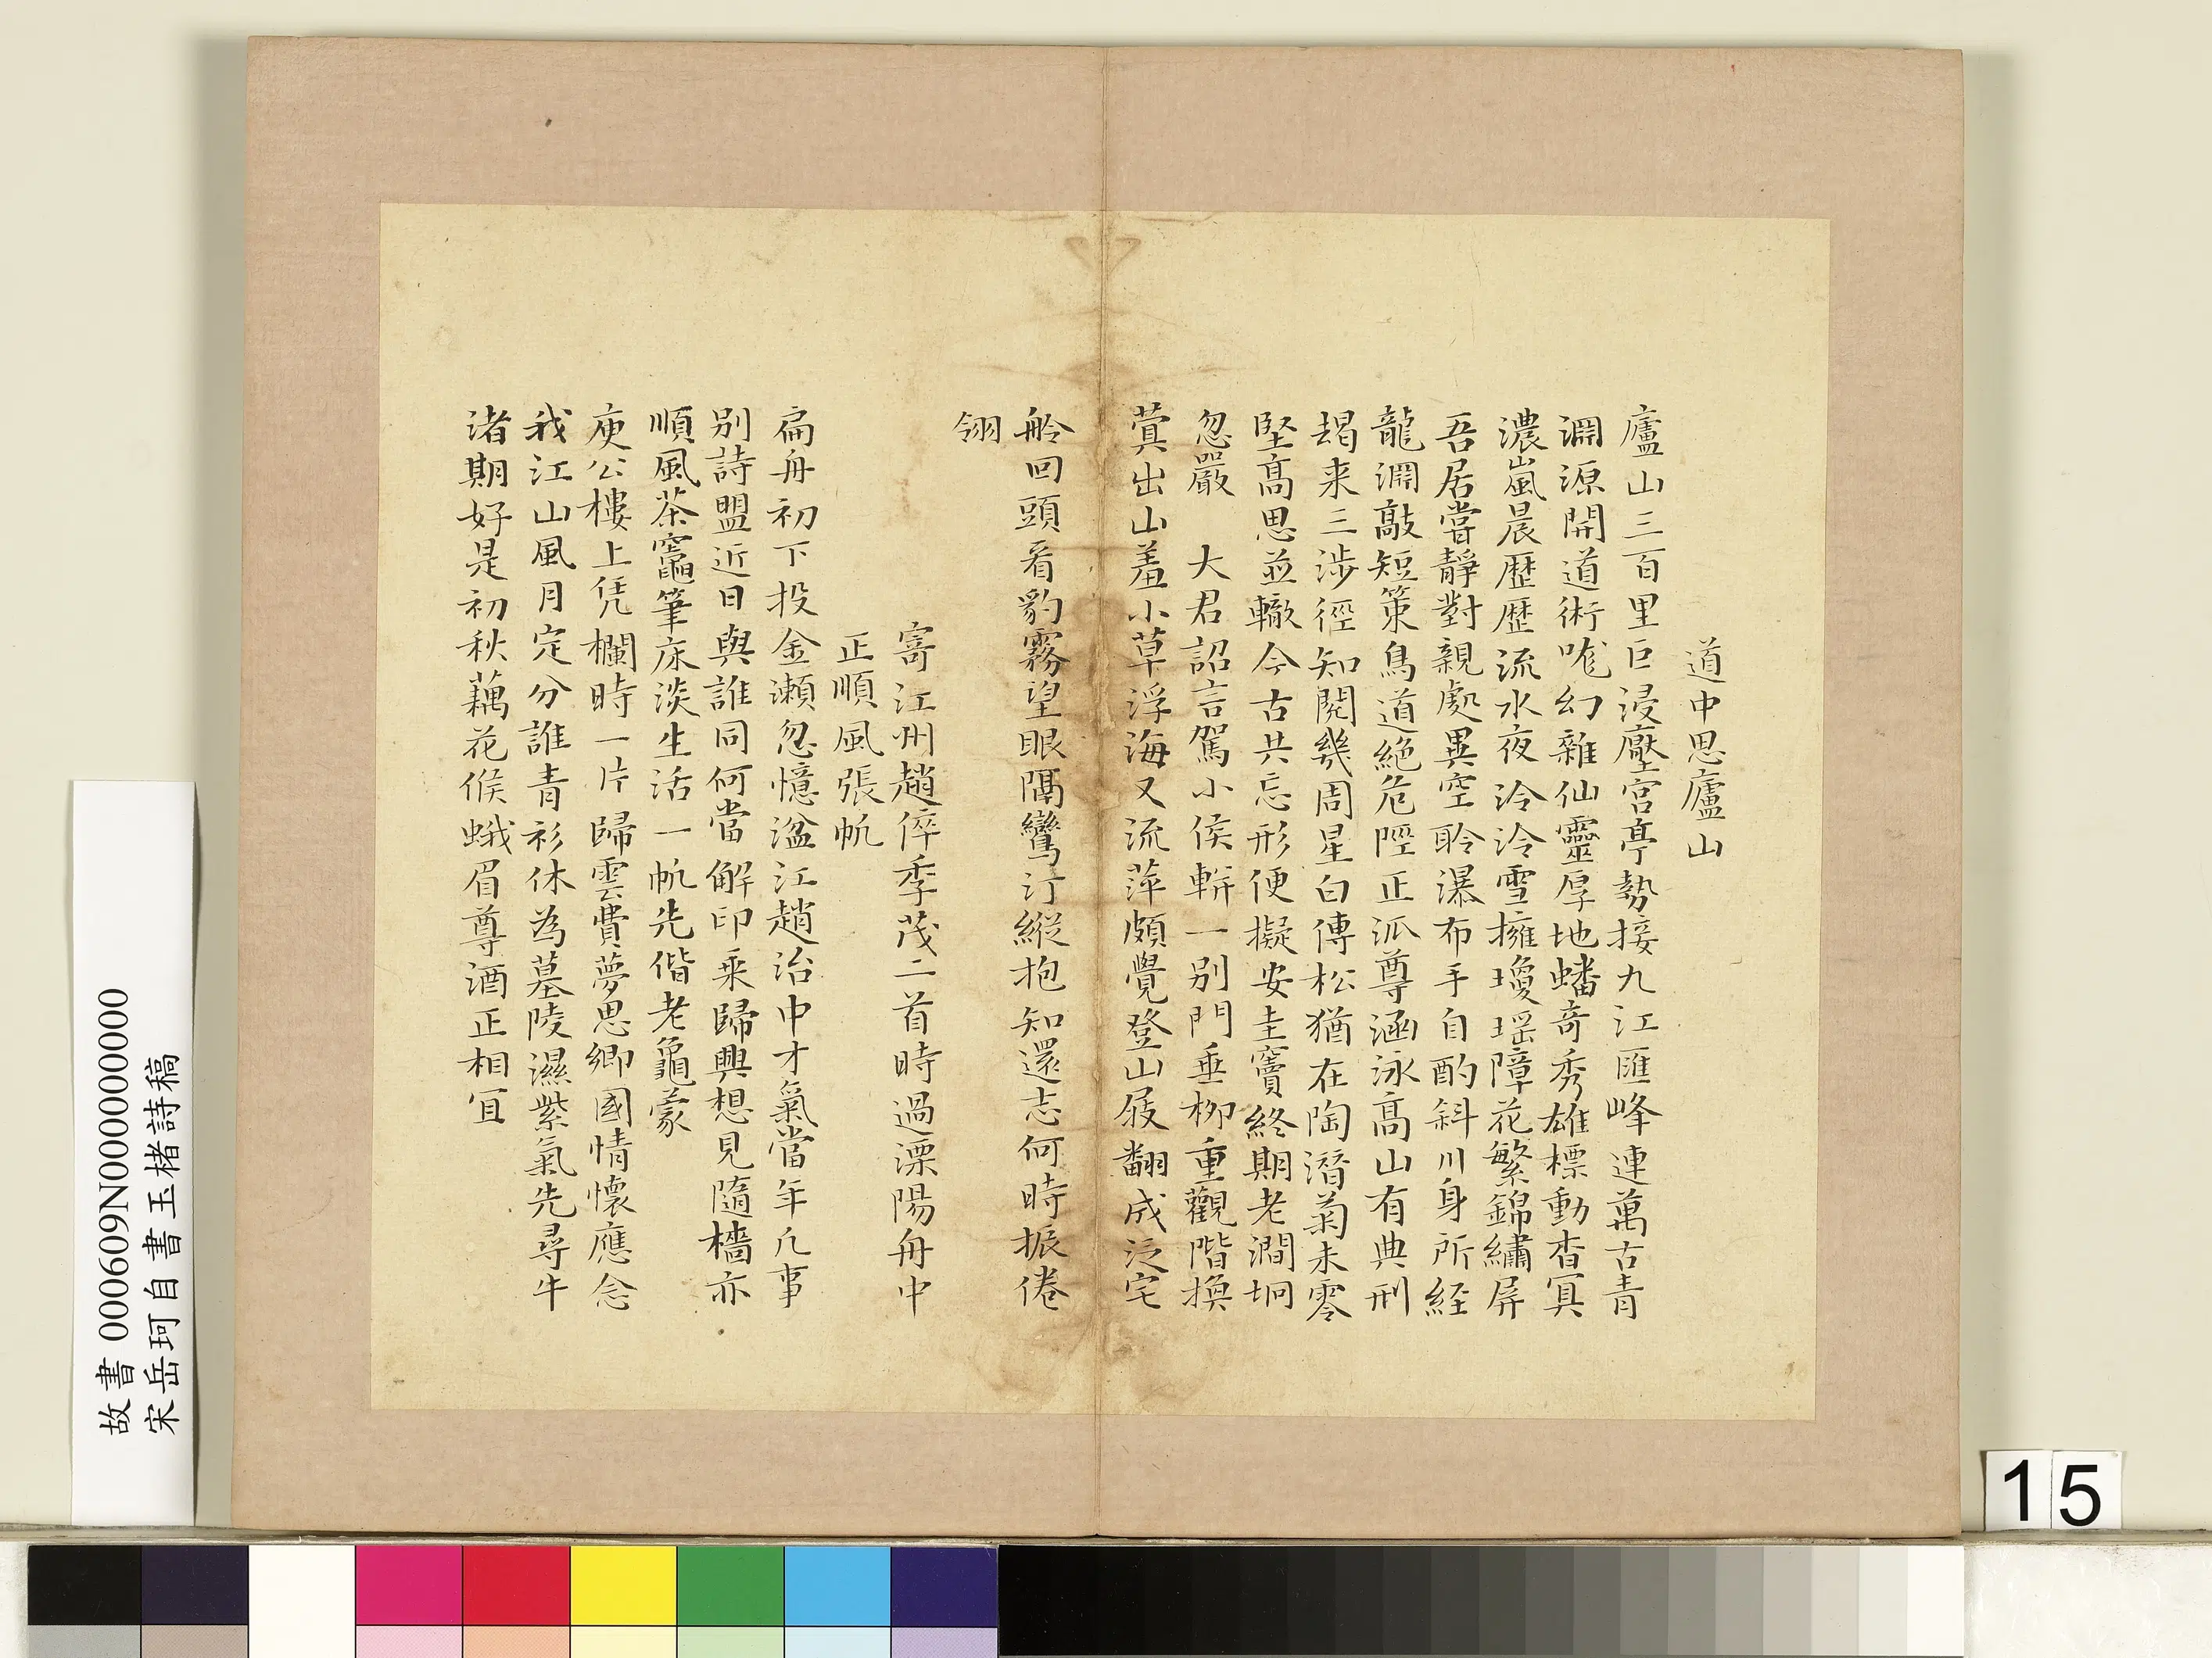 道中思廬山
廬山三百里巨浸壓宮亭勢接九江匯峰連萬古青
淵源開道術咙幻雜仙靈厚地蟠奇秀雄標動杳冥
濃嵐晨歷歷流水夜泠泠雪擁瓊瑤障花繁錦繡屏
吾居嘗靜對親處異空聆瀑布手自酌斜川身所經
龍淵敲短策鳥道絕危陘正派尊涵泳高山有典刑
朅来三涉徑知閱幾周星白傅松猶在陶潛菊未零
堅高思並轍今古共忘形便擬安圭竇終期老澗坰
忽嚴　大君詔言駕小侯軿一別門垂柳重觀階換
蓂出山羞小草浮海又流萍頗覺登山屐翻成泛宅
舲回頭看豹霧望眼隔鸞汀縱抱知還志何時振倦
翎
寄江州趙倅季茂二首時過溧陽舟中
正順風張帆
扁舟初下投金瀨忽憶湓江趙治中才氣當年凢事
別詩盟近日與誰同何當解印乘歸興想見隨檣亦
順風茶竈筆床淡生活一帆先偕老龜蒙
庾公樓上凭欄時一片歸雲費夢思鄉國情懷應念
我江山風月定分誰青衫休為墓陵濕紫氣先尋牛
渚期好是初秋藕花候蛾眉尊酒正相宜
故書 000609N000000000
宋岳珂自書玉楮詩稿
15